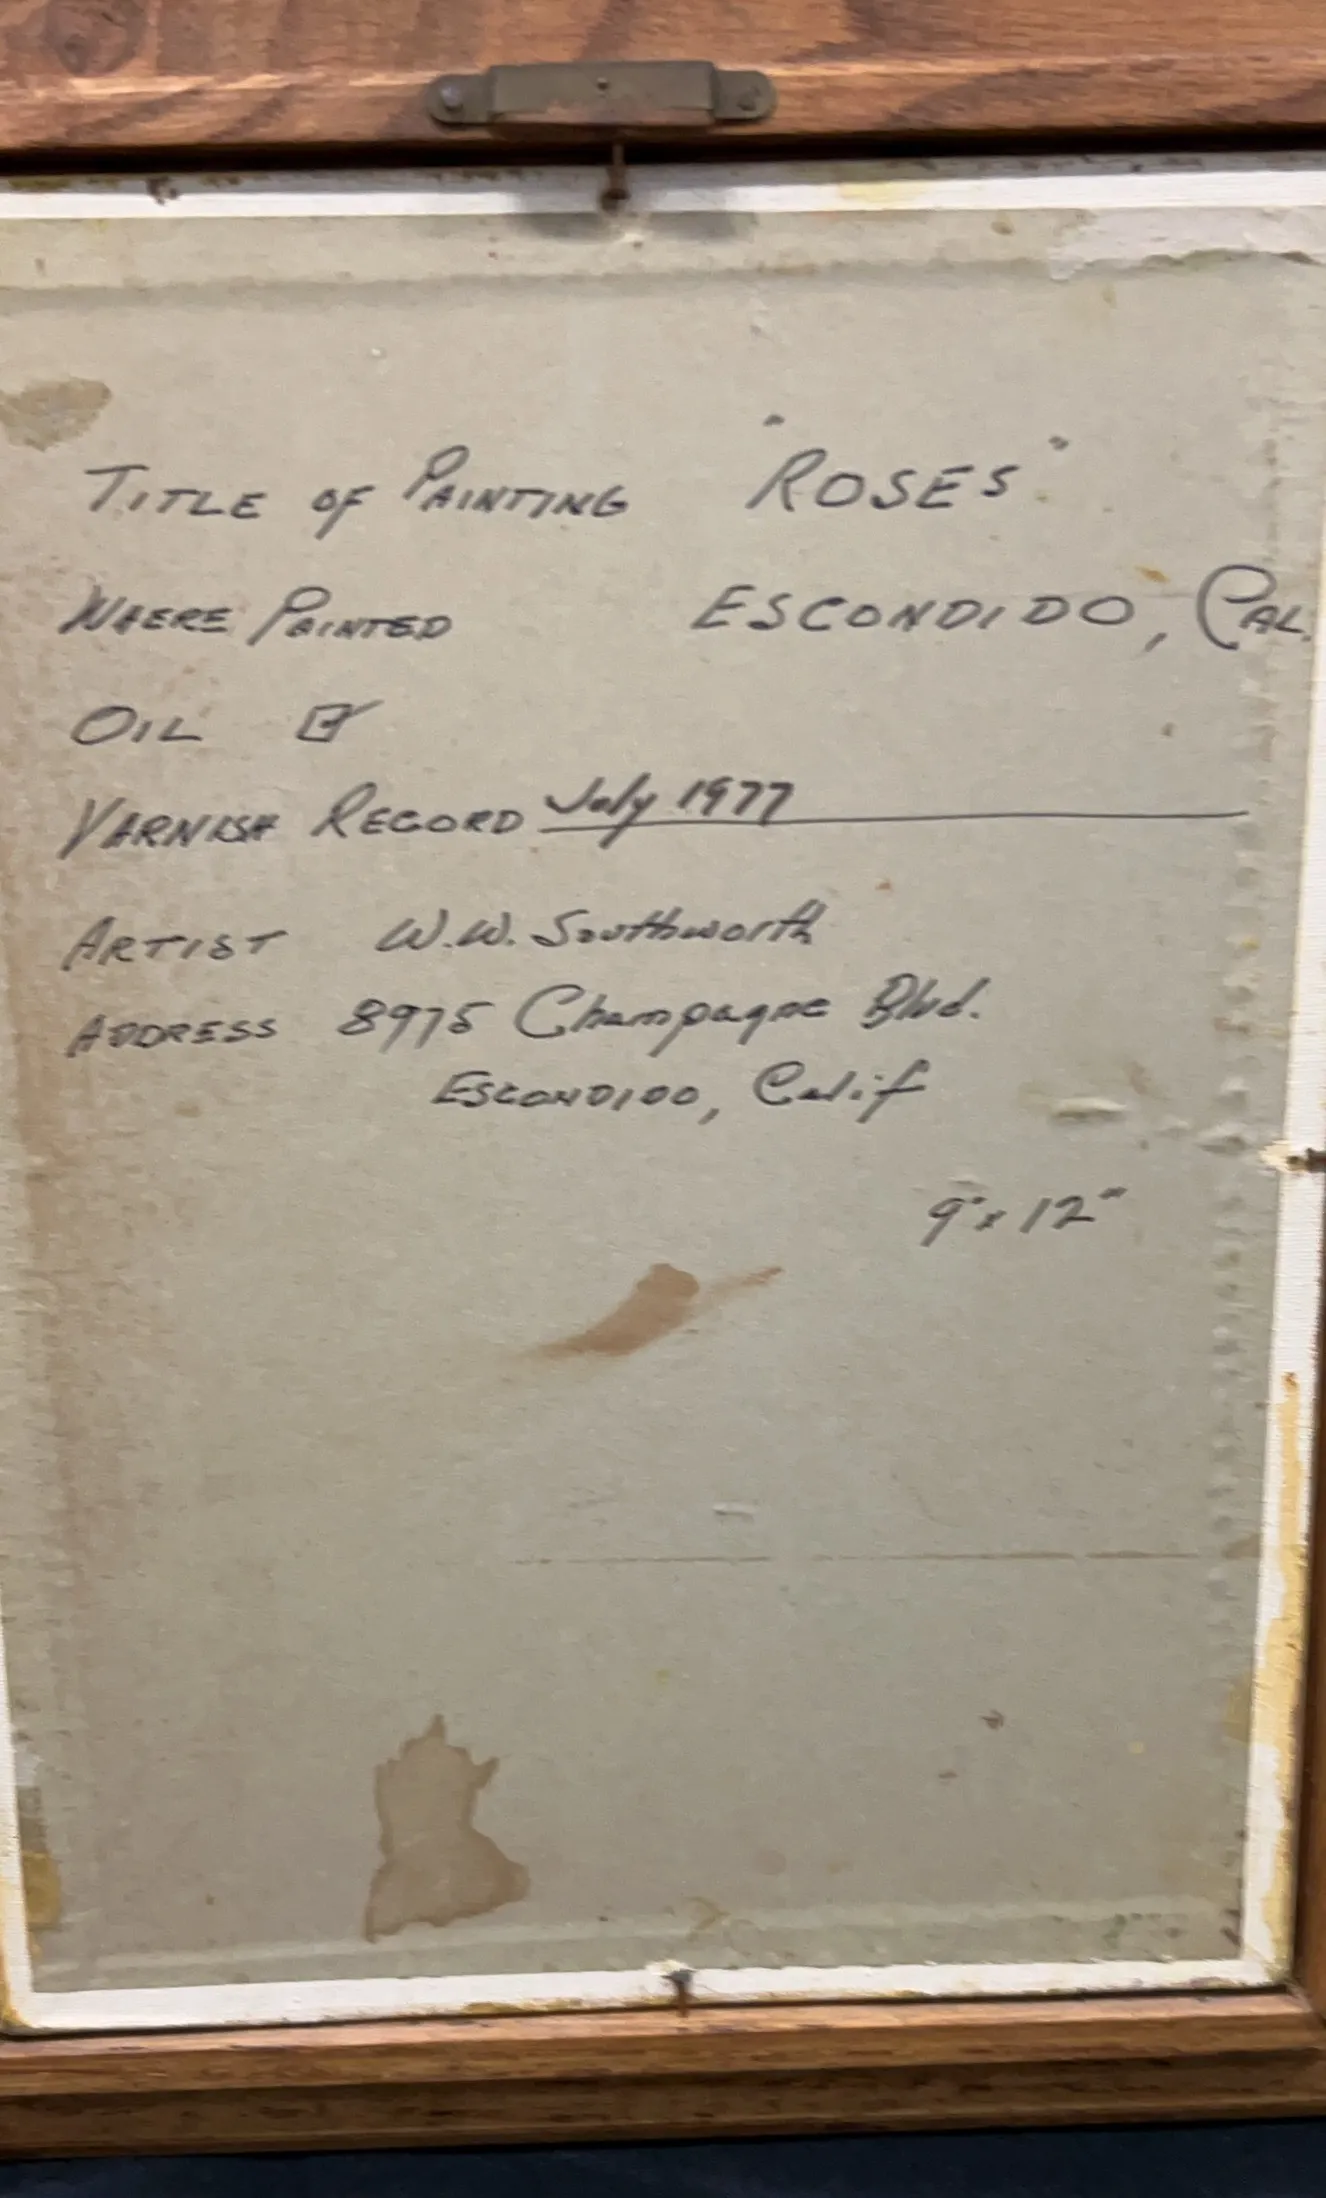 TITLE OF PAINTING "ROSES"
WHERE PAINTED ESCONDIDO, CAL.
OIL ☑
VARNISH RECORD July 1977
ARTIST W.W. Southworth
ADDRESS 8975 Champagne Blvd.
ESCONDIDO, Calif
9" x 12"